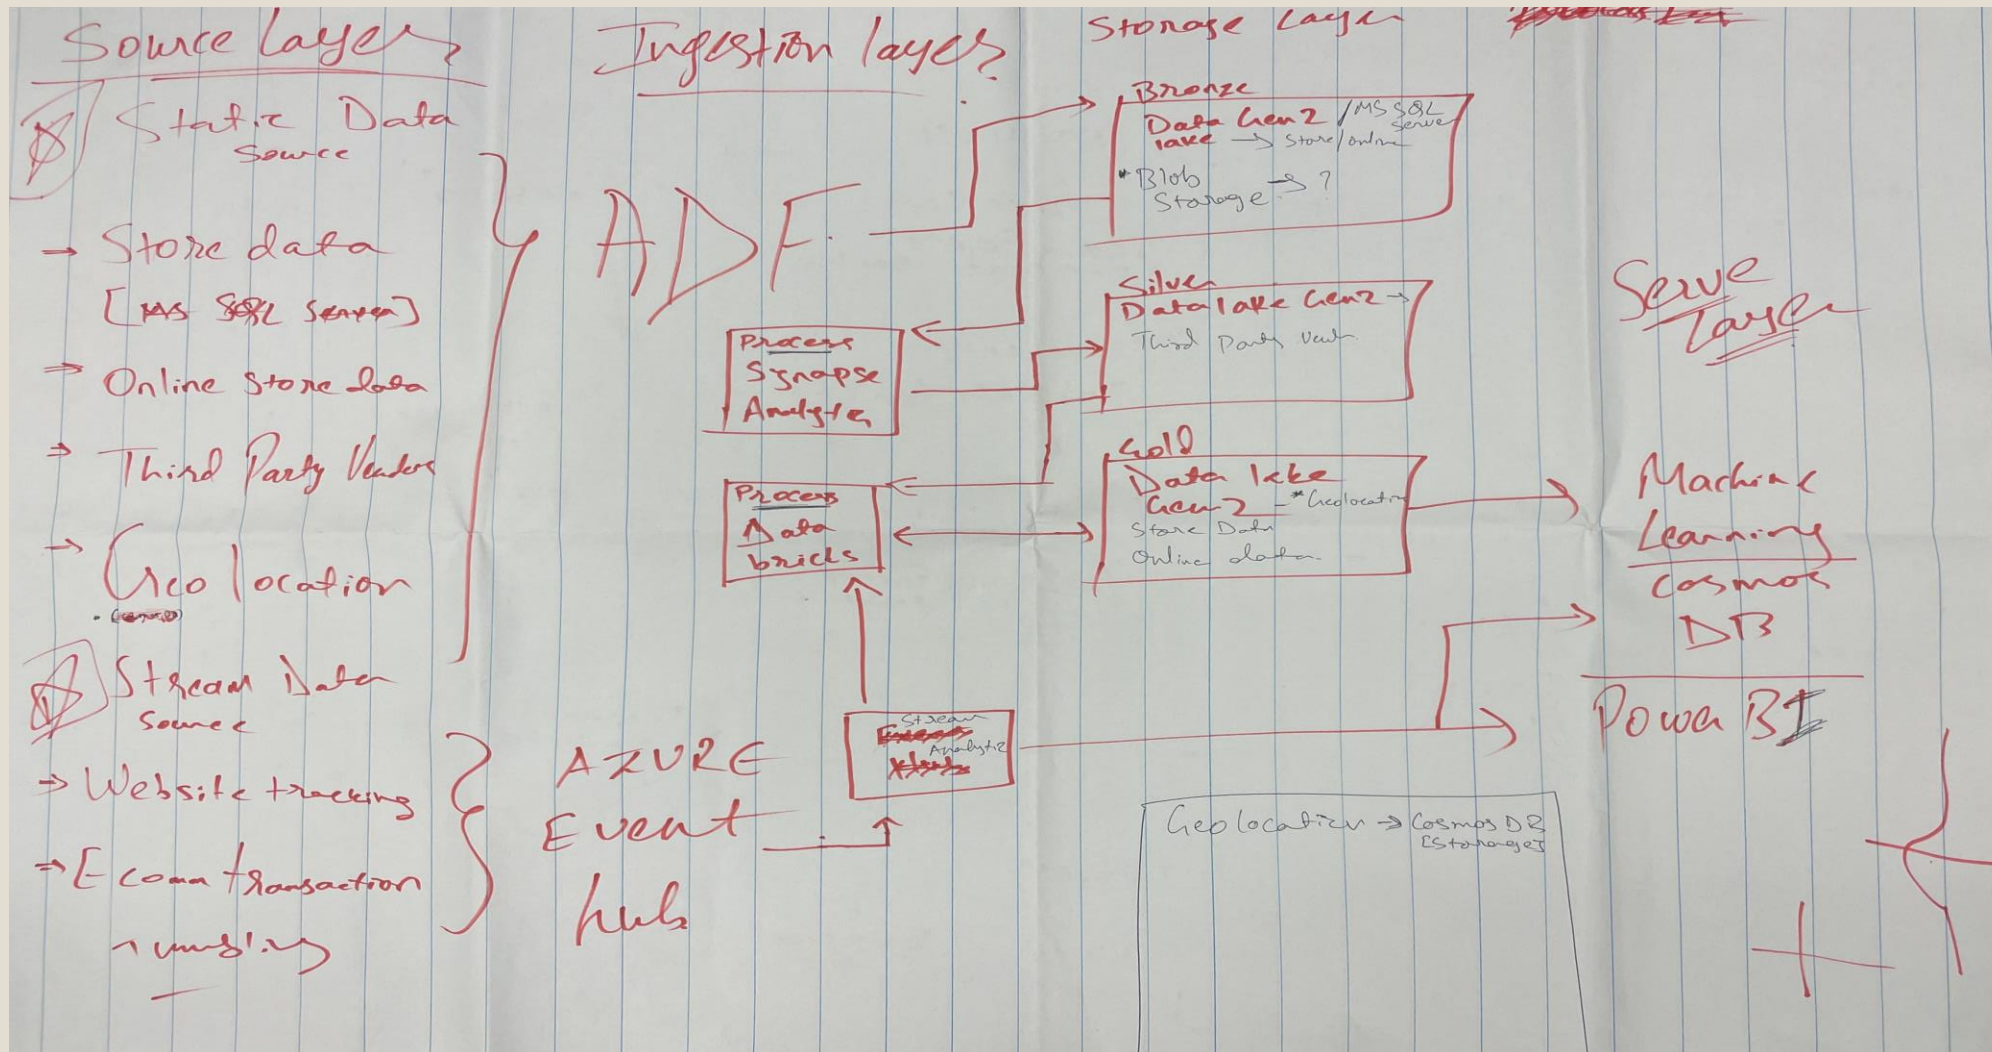 Source Layer
Static Data
Source
→ Store data
[MS SQL Server]
→ Online Store data
→ Third Party Vendors
→ Geo location
Stream Data
Source
→ Website tracking
→ E comm transaction
Ingestion layer
ADF
Process
Synapse
Analytics
Process
Data
bricks
Stream
Analytic
AZURE
Event
hub
Storage Layer
Bronze
Data Gen2 / MS SQL
Server
lake → Store/online
* Blob → ?
Storage
Silver
Data lake Gen2 →
Third Party
Gold
Data lake
Gen2 - * Geolocation
Store Data
Online data
Geolocation → Cosmos DB
[Storage]
Serve
Layer
Machine
Learning
Cosmos
DB
Power BI